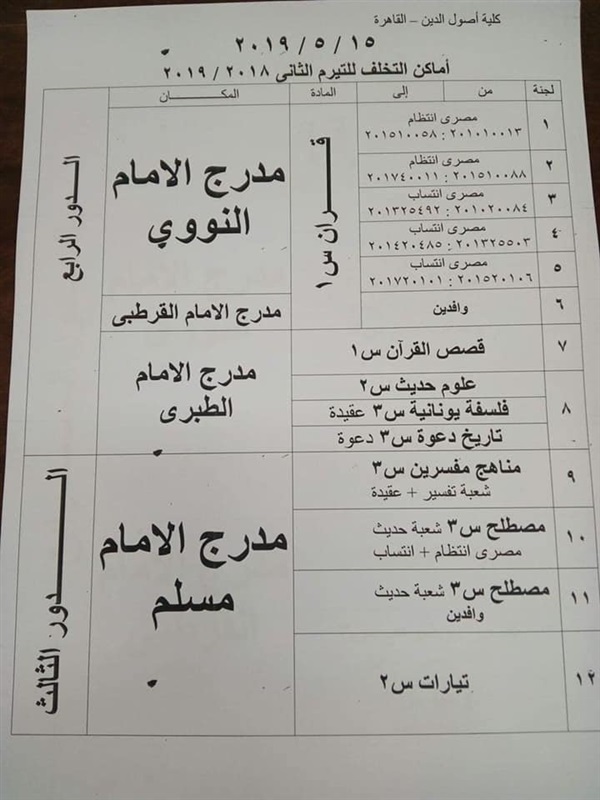 كلية أصول الدين – القاهرة
٢٠١٩ / ٥ / ١٥
أماكن التخلف للتيرم الثانى ٢٠١٨ / ٢٠١٩
لجنة من إلى المادة المكـــــان
١ مصرى انتظام
٢٠١٠١٠٠١٣ : ٢٠١٥١٠٠٥٨
٢ مصرى انتظام
٢٠١٥١٠٠٨٨ : ٢٠١٧٤٠٠١١
٣ مصرى انتساب
٢٠١٠٢٠٠٨٤ : ٢٠١٣٢٥٤٩٢
٤ مصرى انتساب
٢٠١٣٢٥٥٠٣ : ٢٠١٤٢٠٤٨٥
٥ مصرى انتساب
٢٠١٥٢٠١٠٦ : ٢٠١٧٢٠١٠١
٦ وافدين
قـــــران س١
مدرج الامام
النووي
مدرج الامام القرطبى
الـــدور الرابع
٧ قصص القرآن س١
٨ علوم حديث س٢
فلسفة يونانية س٣ عقيدة
تاريخ دعوة س٣ دعوة
مدرج الامام
الطبرى
٩ مناهج مفسرين س٣
شعبة تفسير + عقيدة
١٠ مصطلح س٣ شعبة حديث
مصرى انتظام + انتساب
١١ مصطلح س٣ شعبة حديث
وافدين
١٢ تيارات س٢
مدرج الامام
مسلم
الـــــدور الثالث